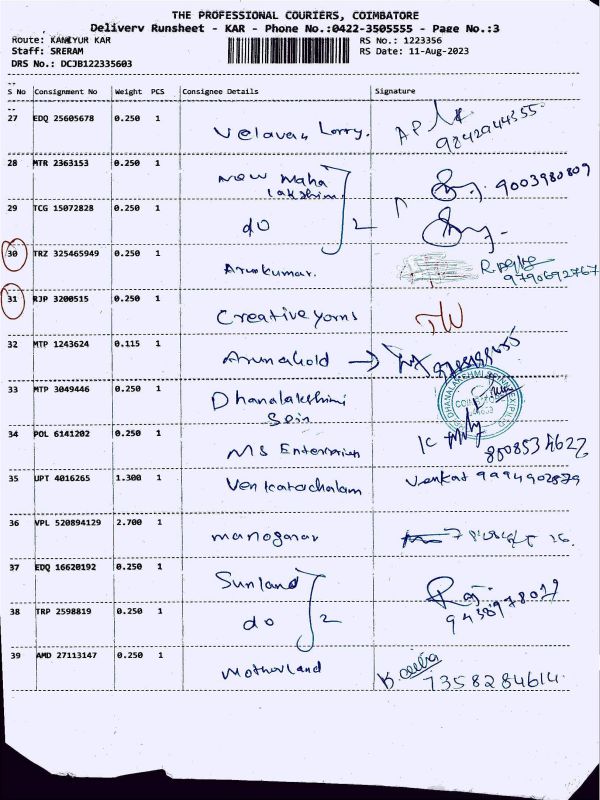 THE PROFESSIONAL COURIERS, COIMBATORE
Delivery Runsheet - KAR - Phone No.:0422-3505555 - Page No.:3
Route: KANIYUR KAR RS No.: 1223356
Staff: SRERAM RS Date: 11-Aug-2023
DRS No.: DCJB122335603
S No Consignment No Weight PCS Consignee Details Signature
27 EDQ 25605678 0.250 1 Velavan Lorry. AP 9842944355
28 MTR 2363153 0.250 1 New Maha Lakshmi 9003980809
29 TCG 15072828 0.250 1 do 2
30 TRZ 325465949 0.250 1 Arunkumar. 9790692767
31 RJP 3200515 0.250 1 Creative yarns TW
32 MTP 1243624 0.115 1
33 MTP 3049446 0.250 1 Dhanalakshmi
34 POL 6141202 0.250 1 MS Enterprises
35 UPT 4016265 1.300 1 Venkatachalam Venkat 9994902879
36 VPL 520894129 2.700 1 manogarar
37 EDQ 16620192 0.250 1 Sunland
38 TRP 2598819 0.250 1 do 2
39 AMD 27113147 0.250 1 Motherland 7358284614